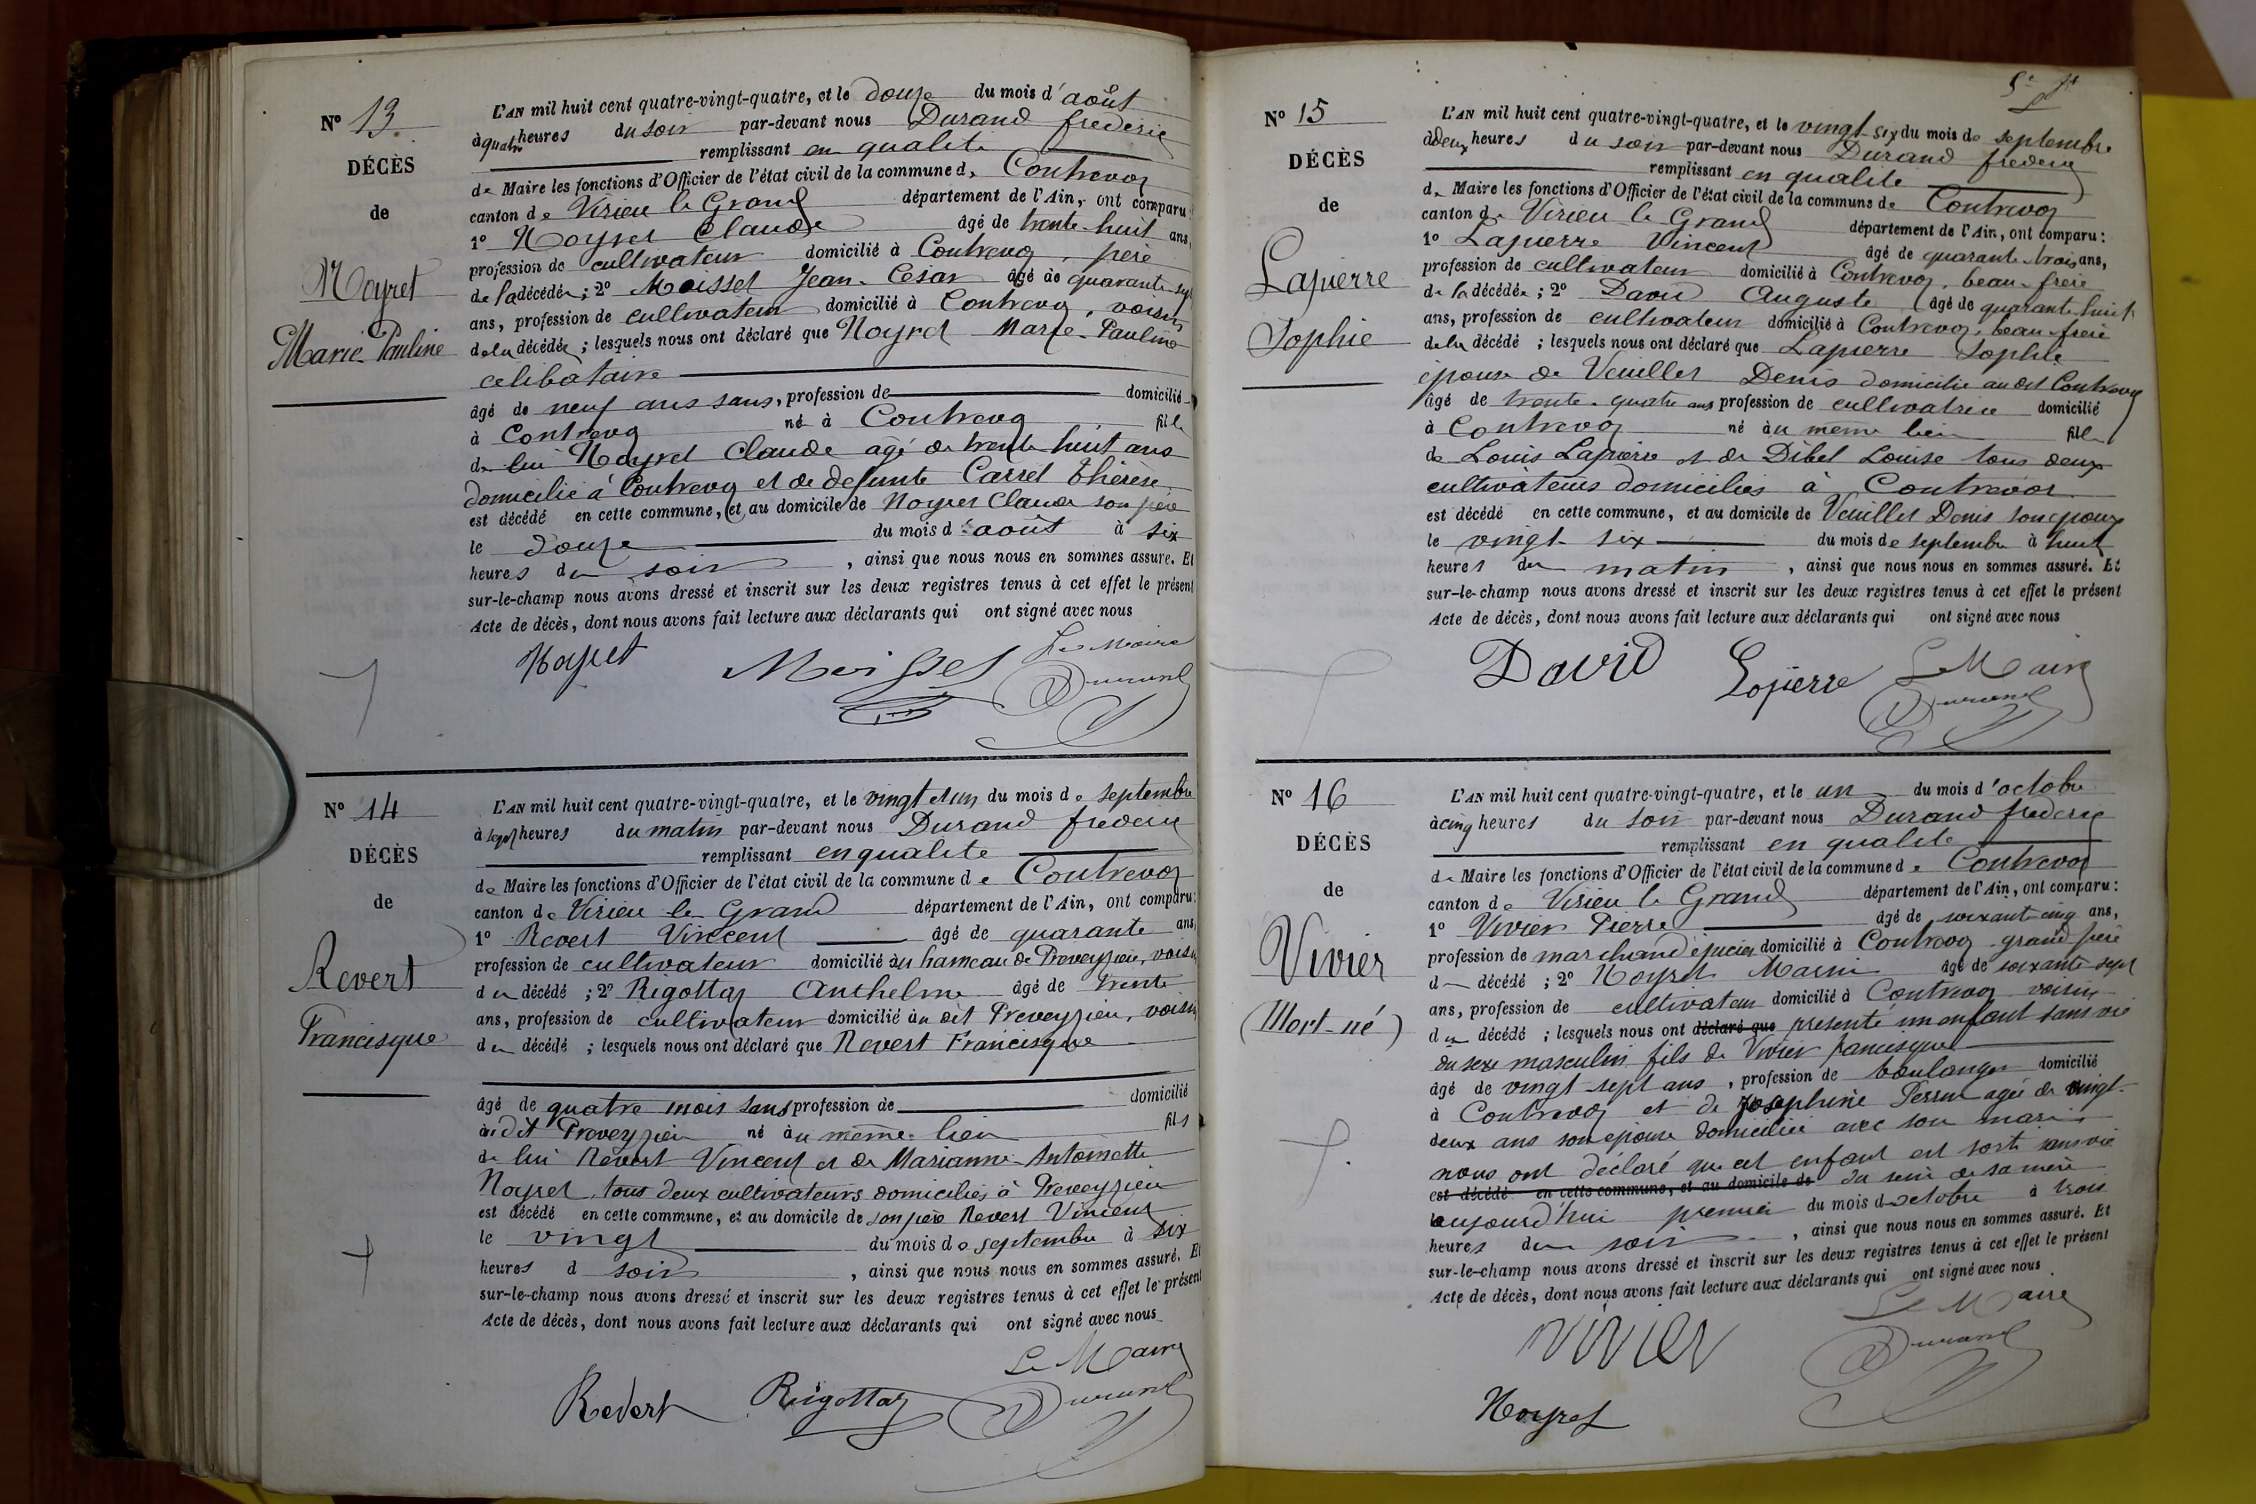 N° 13
DÉCÈS
de
Noyret
Marie Pauline
L'AN mil huit cent quatre-vingt-quatre, et le douze du mois d'août
à quatre heures du soir par-devant nous Durand frederic
remplissant en qualité
de Maire les fonctions d'Officier de l'état civil de la commune de Contrevoz
canton de Virieu le Grand département de l'Ain, ont comparu :
1° Noyret Claude âgé de trente-huit ans,
profession de cultivateur domicilié à Contrevoz, père
de la décédée ; 2° Moissel Jean-César âgé de quarante sept
ans, profession de cultivateur domicilié à Contrevoz, voisin
de la décédée ; lesquels nous ont déclaré que Noyret Marie-Pauline
celibataire
âgé de neuf ans sans, profession de domicilié
à Contrevoz né à Contrevoz fille
de lui Noyret Claude agé de trente huit ans
domicilié à Contrevoz et de defunte Carrel Thérèse
est décédé en cette commune, et au domicile de Noyret Claude son père
le douze du mois d'août à six
heures du soir, ainsi que nous nous en sommes assuré. Et
sur-le-champ nous avons dressé et inscrit sur les deux registres tenus à cet effet le présent
Acte de décès, dont nous avons fait lecture aux déclarants qui ont signé avec nous
Noyret Moissel Le Maire
Durand
N° 14
DÉCÈS
de
Revert
Francisque
L'AN mil huit cent quatre-vingt-quatre, et le vingt et un du mois de septembre
à sept heures du matin par-devant nous Durand frederic
remplissant en qualité
de Maire les fonctions d'Officier de l'état civil de la commune de Contrevoz
canton de Virieu le Grand département de l'Ain, ont comparu :
1° Revert Vincent âgé de quarante ans,
profession de cultivateur domicilié au hameau de Preveyzieu, voisin
du décédé ; 2° Rigottaz Anthelme âgé de trente
ans, profession de cultivateur domicilié au dit Preveyzieu, voisin
du décédé ; lesquels nous ont déclaré que Revert Francisque
âgé de quatre mois sans profession de domicilié
au dit Preveyzieu né au même lieu fils
de lui Revert Vincent et de Marianne Antoinette
Noyret, tous deux cultivateurs domiciliés à Preveyzieu
est décédé en cette commune, et au domicile de son père Revert Vincent
le vingt du mois de septembre à six
heures d soir, ainsi que nous nous en sommes assuré. Et
sur-le-champ nous avons dressé et inscrit sur les deux registres tenus à cet effet le présent
Acte de décès, dont nous avons fait lecture aux déclarants qui ont signé avec nous
Le Maire
Revert Rigottaz Durand
N° 15
DÉCÈS
de
Lapierre
Sophie
L'AN mil huit cent quatre-vingt-quatre, et le vingt-six du mois de septembre
à deux heures du soir par-devant nous Durand frederic
remplissant en qualité
de Maire les fonctions d'Officier de l'état civil de la commune de Contrevoz
canton de Virieu le Grand département de l'Ain, ont comparu :
1° Lapierre Vincent âgé de quarante-trois ans,
profession de cultivateur domicilié à Contrevoz, beau-frère
de la décédée ; 2° David Auguste âgé de quarante huit
ans, profession de cultivateur domicilié à Contrevoz, beau-frère
de la décédé ; lesquels nous ont déclaré que Lapierre Sophie
épouse de Veuillet Denis domicilié au dit Contrevoz
âgé de trente-quatre ans profession de cultivatrice domicilié
à Contrevoz né au même lieu fille
de Louis Lapierre et de Dibel Louise tous deux
cultivateurs domiciliés à Contrevoz
est décédé en cette commune, et au domicile de Veuillet Denis son époux
le vingt-six du mois de septembre à huit
heures du matin, ainsi que nous nous en sommes assuré. Et
sur-le-champ nous avons dressé et inscrit sur les deux registres tenus à cet effet le présent
Acte de décès, dont nous avons fait lecture aux déclarants qui ont signé avec nous
David Lapierre Le Maire
Durand
N° 16
DÉCÈS
de
Vivier
(Mort-né)
L'AN mil huit cent quatre-vingt-quatre, et le un du mois d'octobre
à cinq heures du soir par-devant nous Durand frederic
remplissant en qualité
de Maire les fonctions d'Officier de l'état civil de la commune de Contrevoz
canton de Virieu le Grand département de l'Ain, ont comparu :
1° Vivier Pierre âgé de soixante cinq ans,
profession de marchand épicier domicilié à Contrevoz grand père
d décédé ; 2° Noyret Marin âgé de soixante sept
ans, profession de cultivateur domicilié à Contrevoz voisin
du décédé ; lesquels nous ont déclaré que presenté un enfant sans vie
du sexe masculin fils de Vivier francisque
âgé de vingt-sept ans, profession de boulanger domicilié
à Contrevoz et de Josephine Perrin agée de vingt-
deux ans son épouse domiciliée avec son mari
nous ont déclaré que cet enfant est sorti sans vie
est décédé en cette commune, et au domicile de du sein de sa mère
aujourd'hui premier du mois d'octobre à trois
heures du soir, ainsi que nous nous en sommes assuré. Et
sur-le-champ nous avons dressé et inscrit sur les deux registres tenus à cet effet le présent
Acte de décès, dont nous avons fait lecture aux déclarants qui ont signé avec nous
Vivier Le Maire
Durand
Noyret